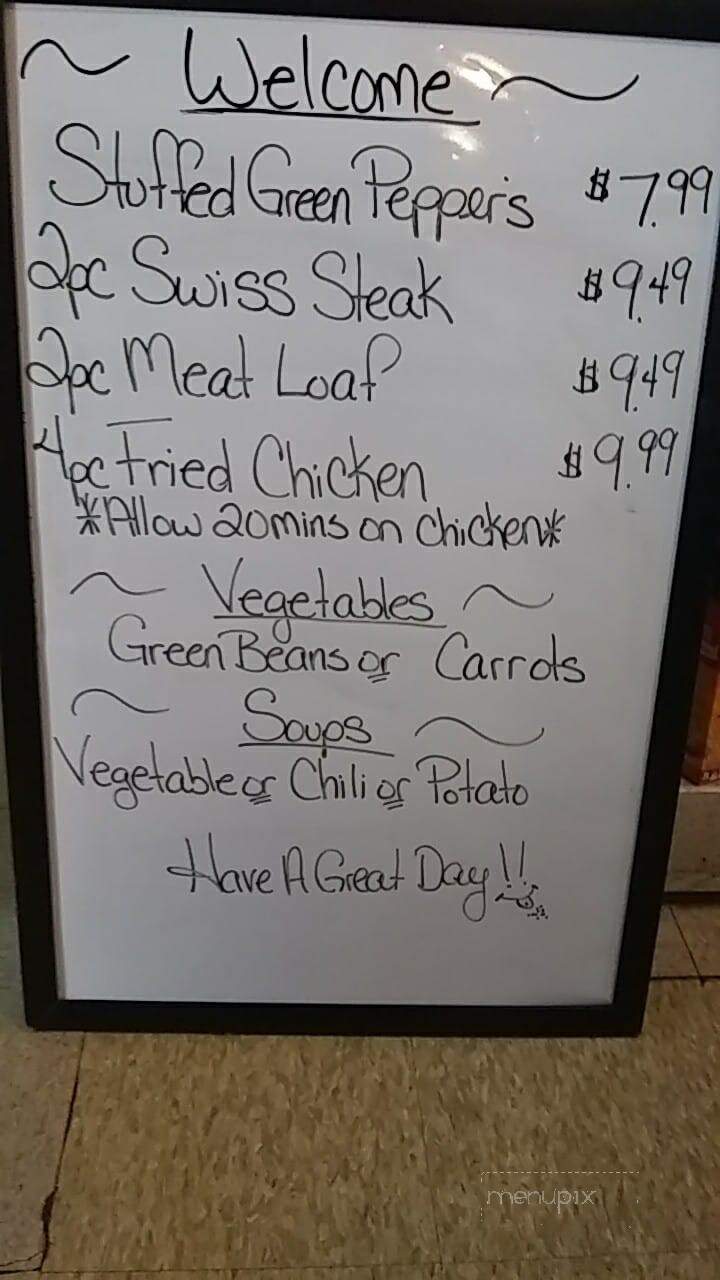 ~ Welcome ~
Stuffed Green Pepper's $7.99
2pc Swiss Steak $9.49
2pc Meat Loaf $9.49
4pc Fried Chicken $9.99
*Allow 20mins on chicken*
~ Vegetables ~
Green Beans or Carrots
~ Soups ~
Vegetable or Chili or Potato
Have A Great Day!!
menupix